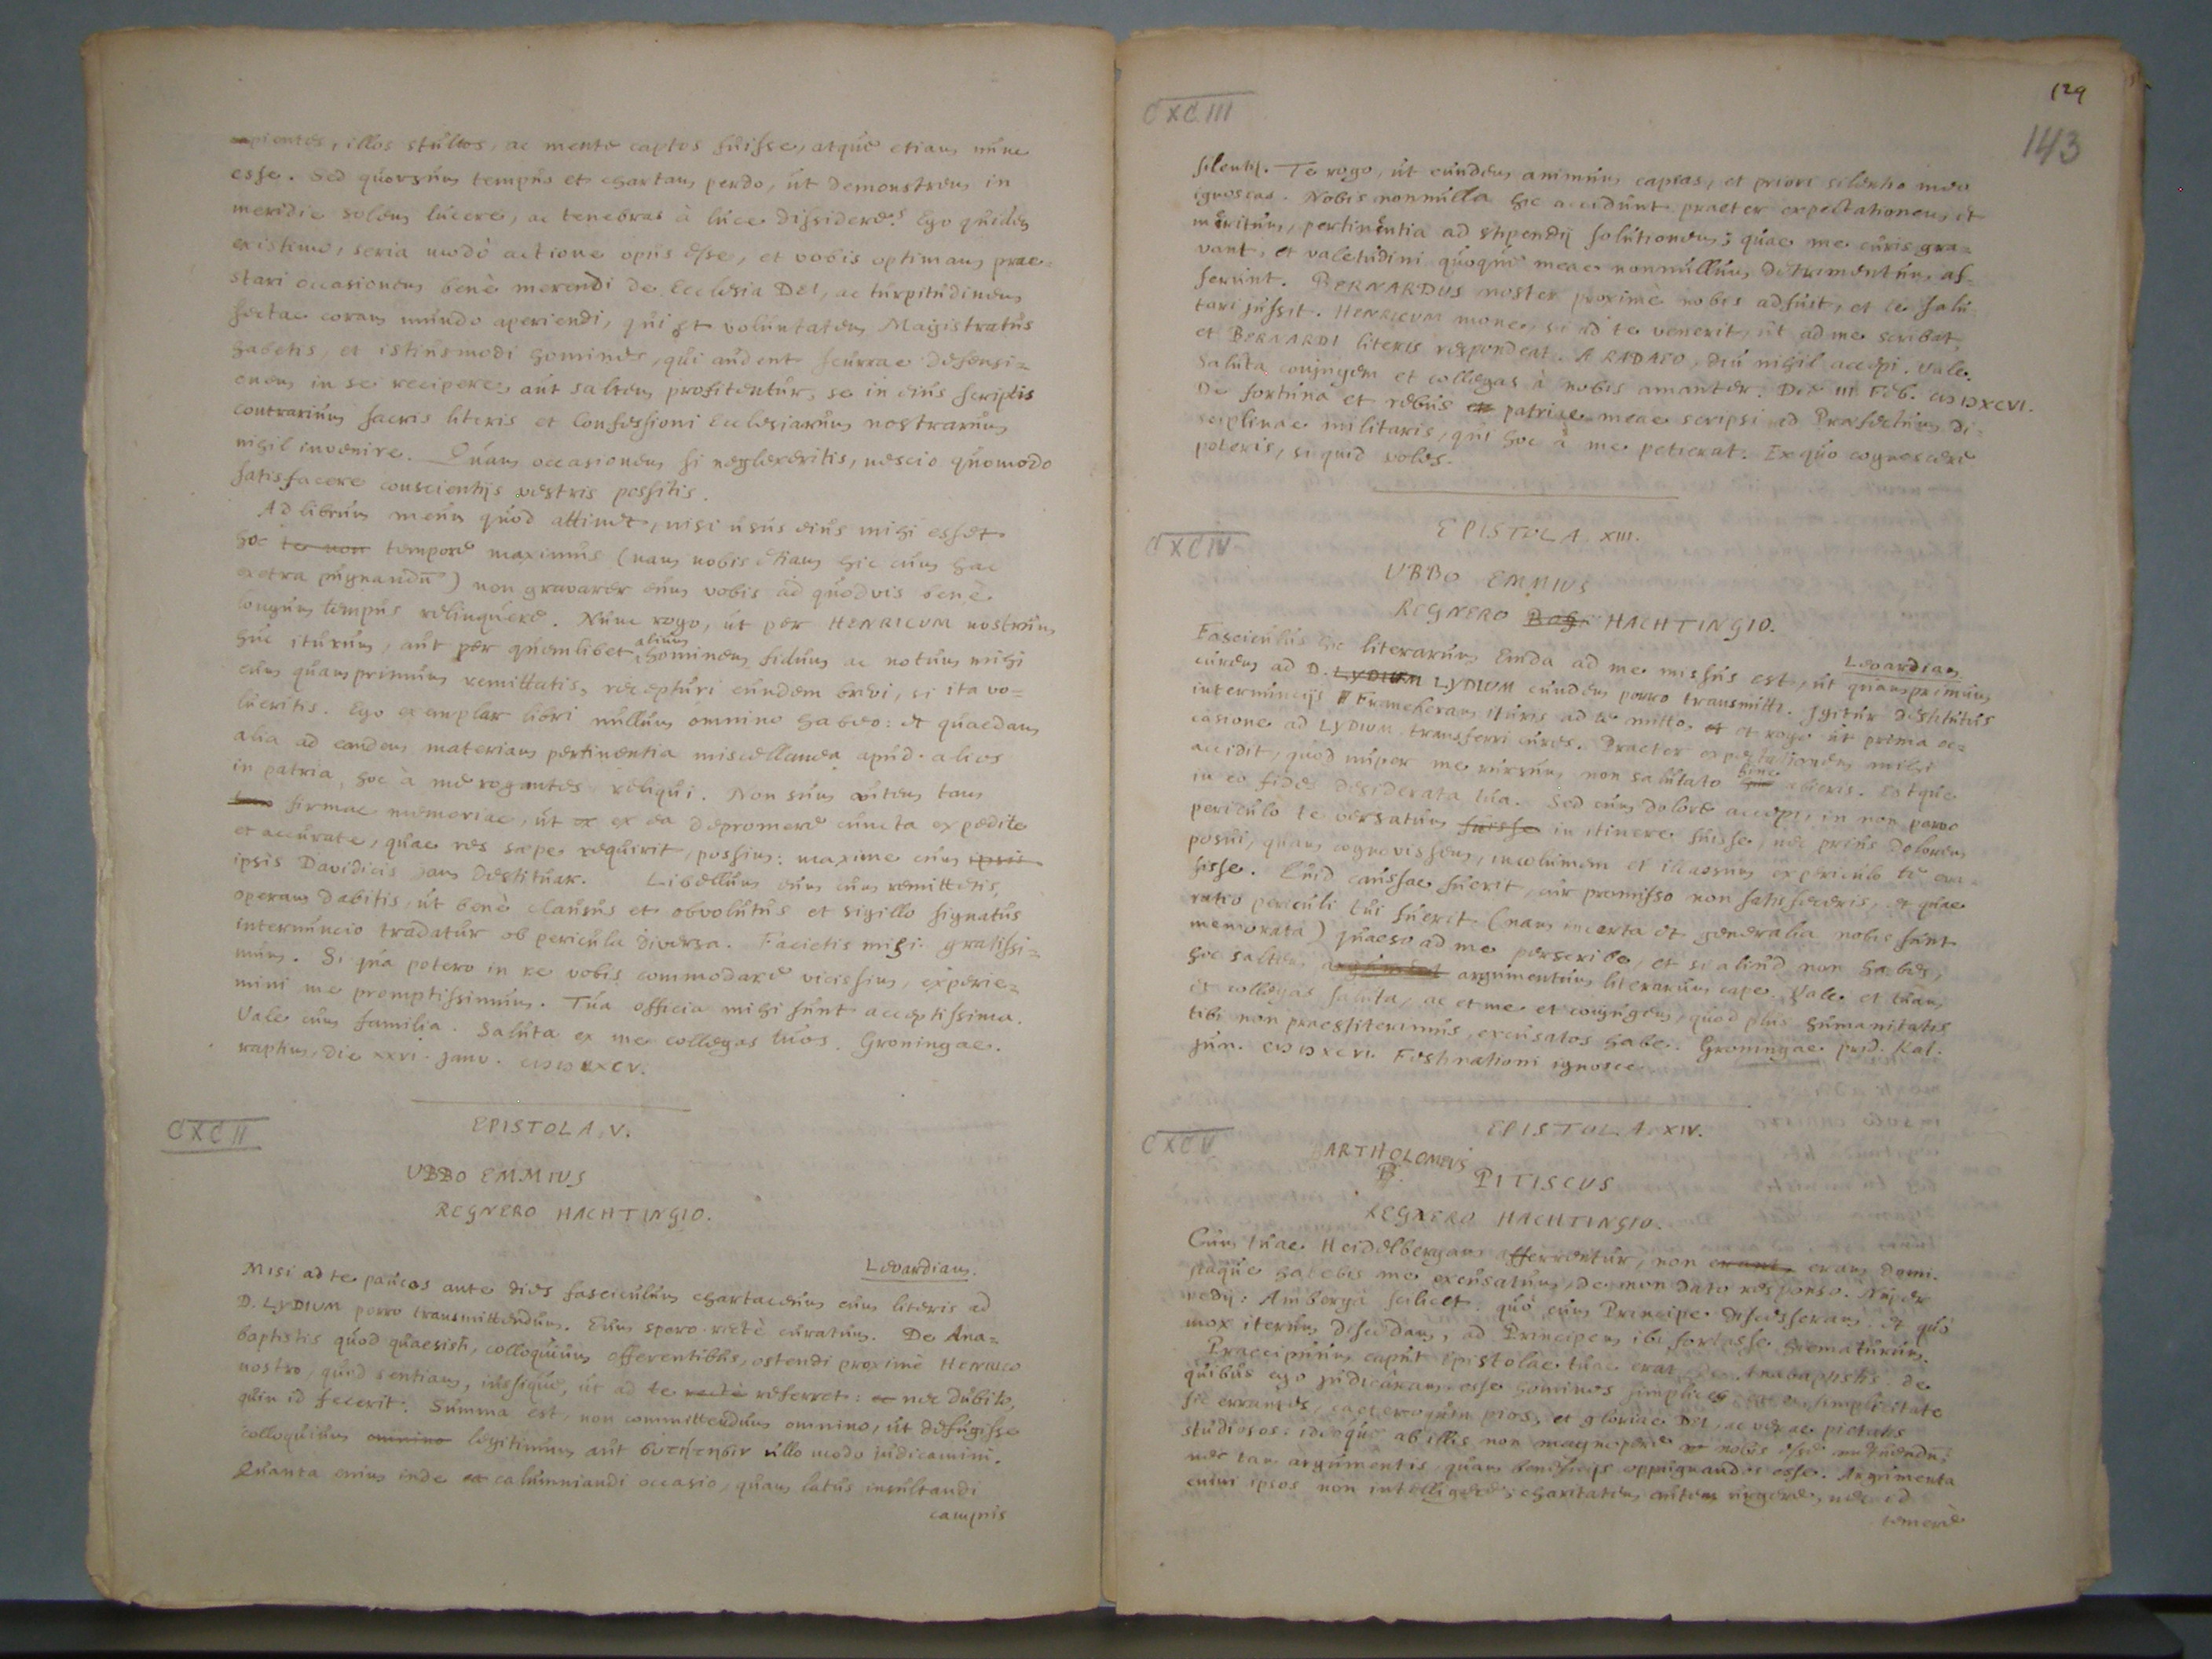 sapientes, illos stultos, ac mente captos fuisse, atque etiam nunc
esse. Sed quorsum tempus et chartam perdo, ut demonstrem in
meridie solem lucere, ac tenebras à luce dissidere? Ego quidem
existimo, seria modò actione opus esse, et vobis optimam prae-
stari occasionem benè merendi de Ecclesia DEI, ac turpitudinem
sectae coram mundo aperiendi, qui et voluntatem Magistratus
habetis, et istiusmodi homines, qui audent scurrae defensi-
onem in se recipere, aut saltem profitentur, se in eius scriptis
contrarium sacris literis et Confessioni Ecclesiarum nostrarum
nihil invenire. Quam occasionem si neglexeritis, nescio quomodo
satisfacere conscientijs vestris possitis.
Ad librum meum quod attinet, nisi usus eius mihi esset
hoc te non tempore maximus (nam nobis etiam hic cum hac
excetra pugnandū) non gravarer eum vobis ad quodvis benè
longum tempus relinquere. Nunc rogo, ut per HENRICUM nostrum
huc iturum, aut per quemlibet alium hominem fidum ac notum mihi
eum quamprimum remittatis, recepturi eundem brevi, si ita vo-
lueritis. Ego exemplar libri nullum omnino habeo: et quaedam
alia ad eandem materiam pertinentia miscellanea apud alios
in patria, hoc à me rogantes reliqui. Non sum autem tam
firmae memoriae, ut ex ex ea depromere cuncta expedite
et accurate, quae res saepe requirit, possim: maxime cum ipsis
ipsis Davidicis jam destituar. Libellum eum cum remittetis,
operam dabitis, ut benè clausus et obvolutus et sigillo signatus
internuncio tradatur ob pericula diversa. Facietis mihi gratissi-
mum. Si qua potero in re vobis commodare vicissim, experie-
mini me promptissimum. Tua officia mihi sunt acceptissima.
Vale cum familia. Saluta ex me collegas tuos. Groningae.
raptim, die XXVI. Janv. CIↃIↃXCV.
CXCII
EPISTOLA, V.
UBBO EMMIUS
REGNERO HACHTINGIO.
Levardiam.
Misi ad te paucos ante dies fasciculum chartaceum cum literis ad
D. LYDIUM porro transmittendum. Eum spero rectè curatum. De Ana-
baptistis quod quaesisti, colloquium offerentibus, ostendi proximè Henrico
nostro, quid sentiam, iussique, ut ad te rectè referret: ec nec dubito,
quin id fecerit. Summa est, non committendum omnino, ut defugisse
colloquium omnino legitimum aut ullo modo iudicamini.
Quanta enim inde et calumniandi occasio, quam latus insultandi
campus
129
143
CXCIII
silentij. Te rogo, ut eundem animum capias, et priori silentio meo
ignoscas. Nobis nonnulla hic accidunt praeter expectationem et
meritum, pertinentia ad stipendij solutionem; quae me curis gra-
vant, et valetudini quoque meae nonnullum detrimentum af-
ferunt. BERNARDUS noster proximè nobis adfuit, et te salu-
tari jussit. HENRICUM mone, si ad te venerit, ut ad me scribat,
et BERNARDI literis respondeat. A RADAEO, diu nihil accepi. Vale.
Saluta conjugem et collegas à nobis amanter. Die III Feb. CIↃIↃXCVI.
De fortuna et rebus et patriae meae scripsi ad Praefectum di-
sciplinae militaris, qui hoc à me petierat. Ex quo cognoscere
poteris, si quid voles.
CXCIV
EPISTOLA, XIII.
UBBO EMMIUS
REGNERO HACHTINGIO.
Levardiam.
Fasciculus hic literarum Emda ad me missus est, ut quamprimum
curem ad D. LYDIUM LYDIUM eundem porro transmitti. Igitur destitutus
internuncijs Franekeram ituris ad te mitto, et et rogo ut prima oc-
casione ad LYDIUM transferri cures. Praeter expectationem mihi
accidit, quod nuper me rursum non salutato hinc abieris. Estque
in eo fides desiderata tua. Sed cum dolore accepi, in non parvo
periculo te versatum fuisse in itinere fuisse, nec prius dolorem
posui, quam cognovissem, incolumem et illaesum ex periculo te eva-
sisse. Quid caussae fuerit, cur promisso non satisfeceris, et quae
ratio periculi tui fuerit (nam incerta et generalia nobis sunt
memorata) quaeso ad me perscribe, et si aliud non habes,
hoc saltem argumentum literarum cape. Vale et tuam,
et collegas saluta, ac et me et conjugem, quod plus humanitatis
tibi non praestiterimus, excusatos habe. Groningae prid. Kal.
Jun. CIↃIↃXCVI. Festinationi ignosce.
CXCV
EPISTOLA, XIV.
BARTHOLOMEUS PITISCUS
REGNERO HACHTINGIO.
Cum tuae Heidelbergam afferrentur, non erant eram domi.
Itaque habebis me excusatum, de non dato responso. Nuper
redij: Ambergâ scilicet: quò cum Principe discesseram: et quò
mox iterum discedam, ad Principem ibi fortasse hiematurum.
Praecipuum caput Epistolae tuae erat de Anabaptistis: de
quibus ego judicaram esse homines simplices, et ex simplicitate
sic errantes, caeteroquin pios, et gloriae DEI, ac verae pietatis
studiosos: ideoque ab illis non magnopere nobis esse metuendū;
nec tam argumentis, quam beneficijs oppugnandos esse. Argumenta
enim ipsos non intelligere; charitatem autem urgere, nec id
temere